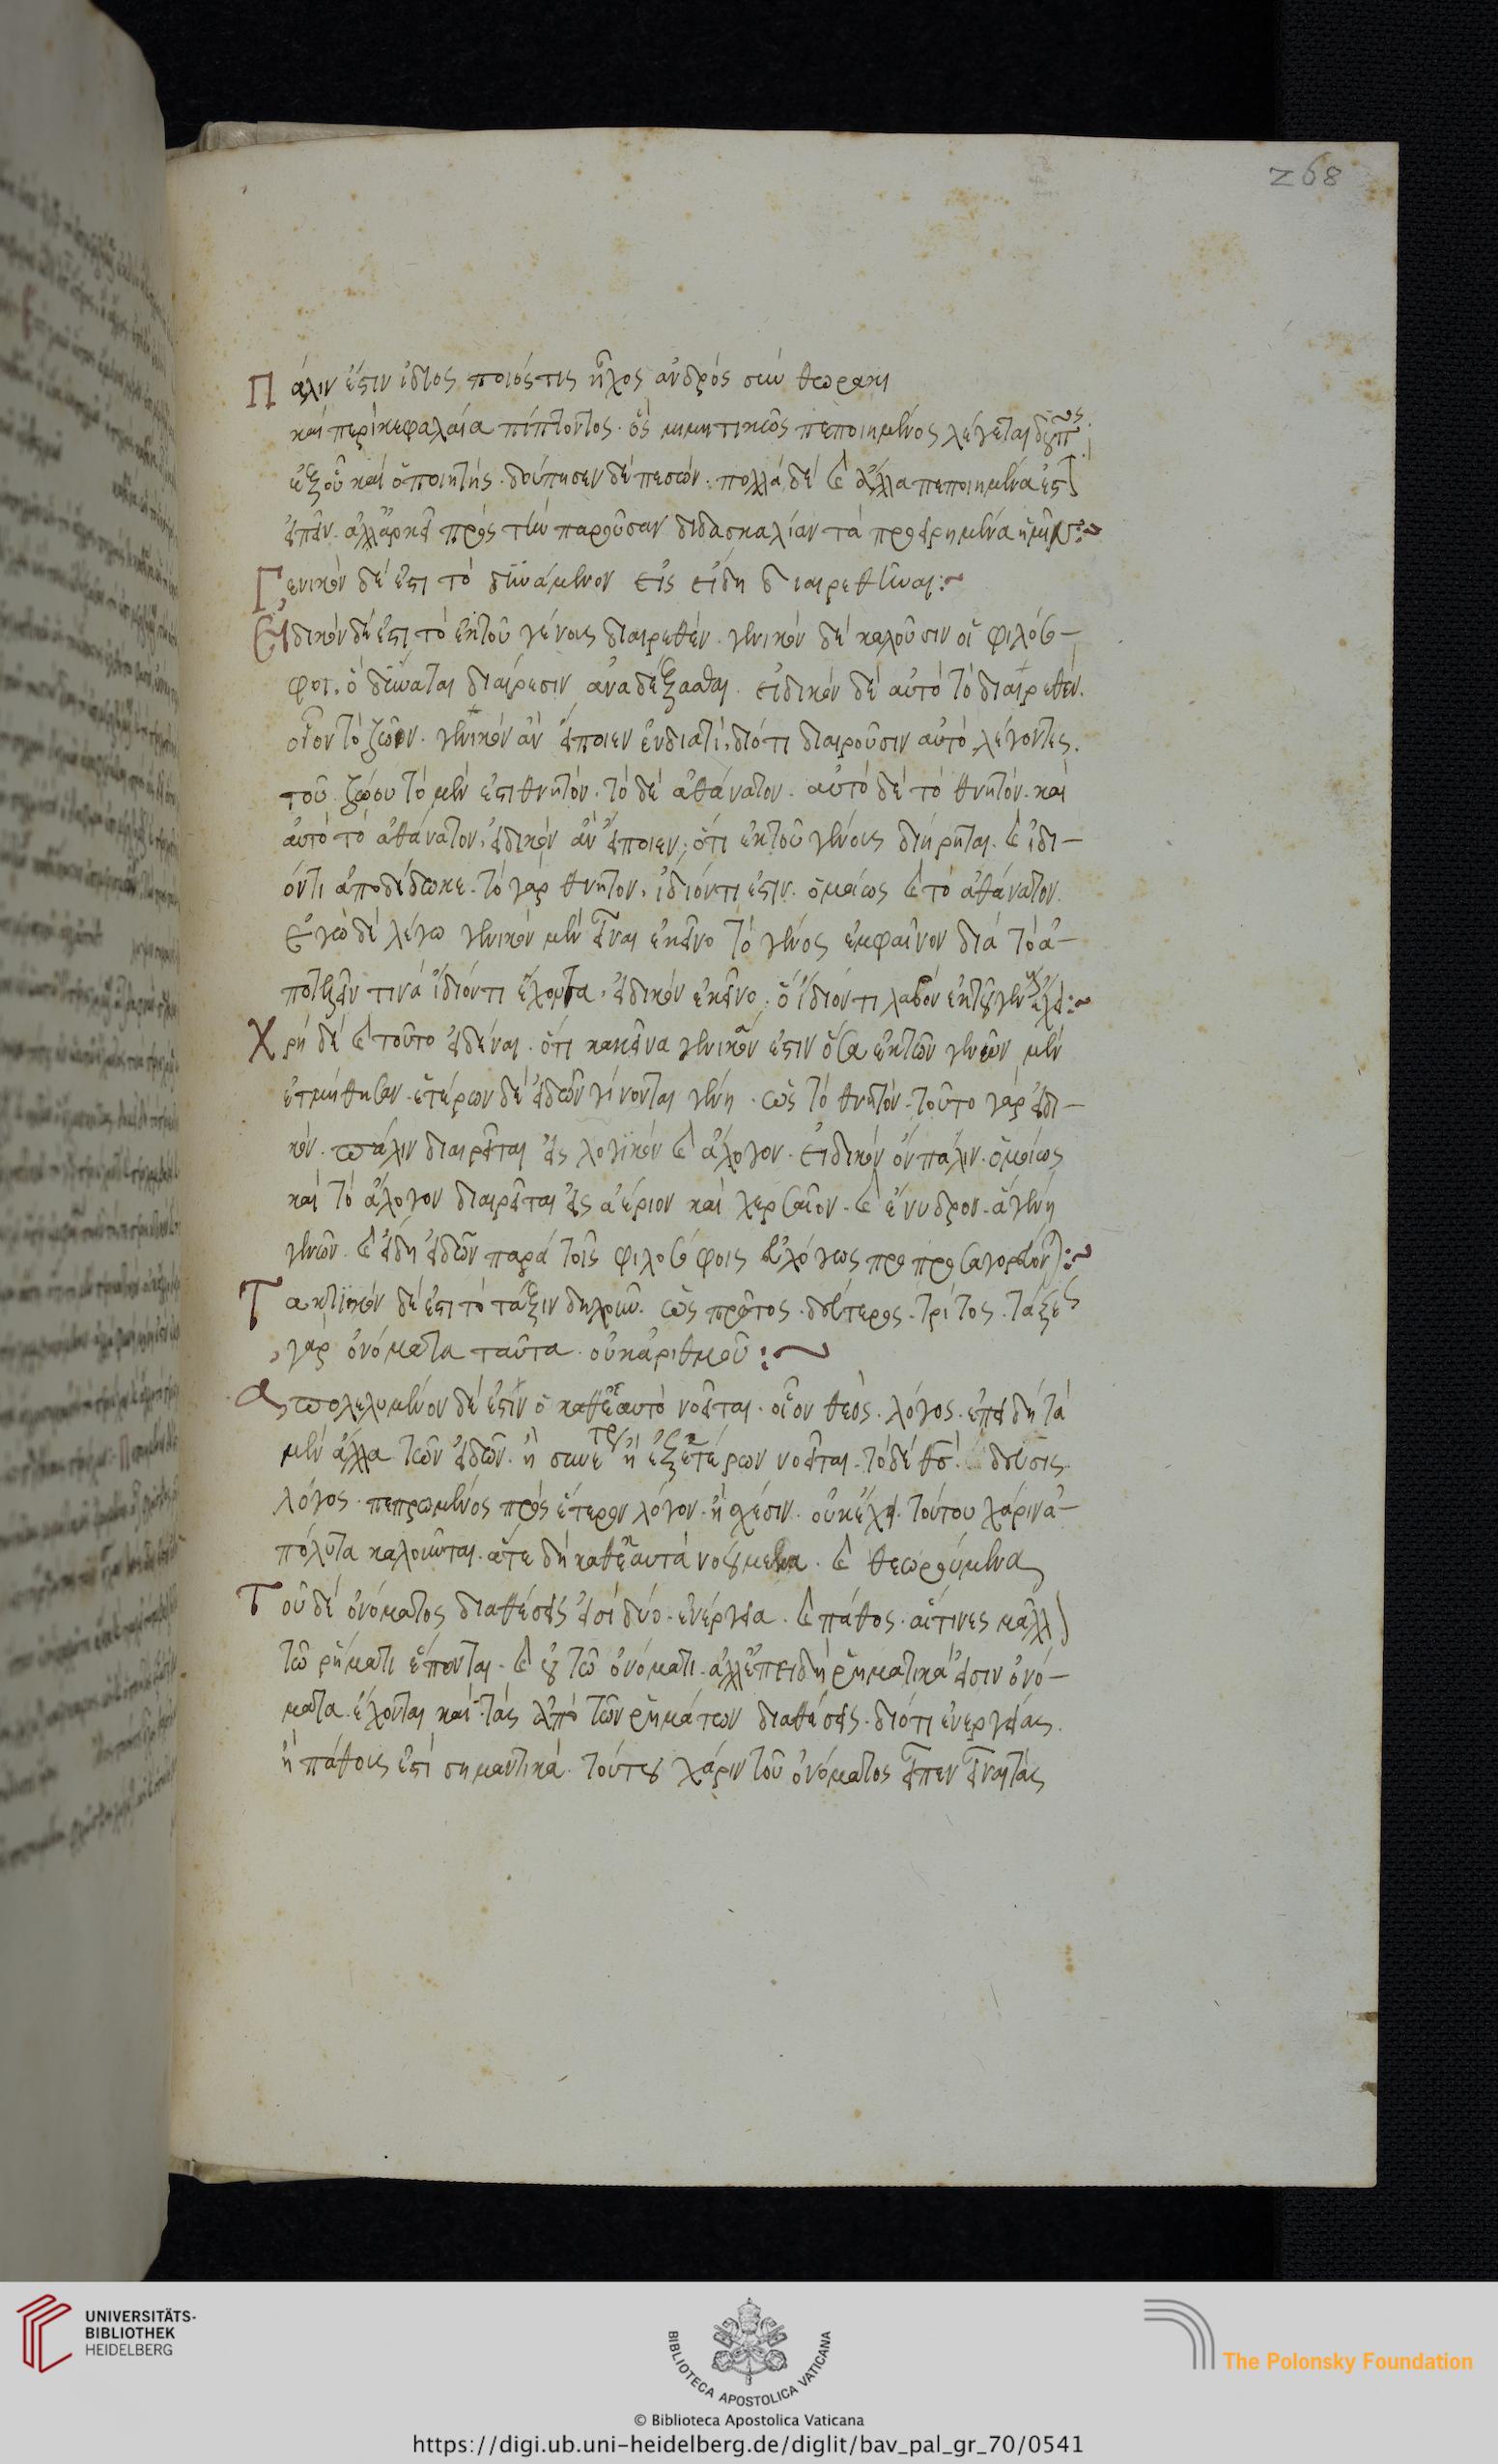 268
Πάλιν ἐστὶν ἰδίος ποιός τις ἦχος ἀνδρός σὺν θώρακι
καὶ περικεφαλαία πίπτοντος· ὃς μιμητικῶς πεποιημένος λέγεται δοῦπος·
ἐξ οὗ καὶ ὁ ποιητής· δούπησεν δὲ πεσών· πολλὰ δὲ καὶ ἄλλα πεποιημένα ἐστ
εἰπεῖν· ἀλλ' ἀρκεῖ πρὸς τὴν παροῦσαν διδασκαλίαν τὰ προειρημένα ἡμῖν:~
Γενικόν δέ ἐστι τὸ δυνάμενον εἰς εἴδη διαιρεθῆναι:~
Εἰδικόν δέ ἐστι τὸ ἐκ τοῦ γένους διαιρεθέν· γενικόν δὲ καλοῦσιν οἱ φιλόσο–
φοι, ὃ δύναται διαίρεσιν ἀναδέξασθαι· εἰδικόν δὲ αὐτὸ τὸ διαιρεθέν.
οἷον τὸ ζῶον· γενικόν ἂν εἴποιεν διατί, διότι διαιροῦσιν αὐτὸ λέγοντες.
τοῦ ζώου τὸ μέν ἐστι θνητόν· τὸ δὲ ἀθάνατον· αὐτὸ δὲ τὸ θνητόν· καὶ
αὐτὸ τὸ ἀθάνατον, εἰδικόν ἂν εἴποιεν, ὅτι ἐκ τοῦ γένους διήρηται· καὶ ἰδι–
όντι ἀποδέδωκε· τὸ γὰρ θνητόν, ἰδιόντι ἐστιν· ὁμοίως καὶ τὸ ἀθάνατον.
Ἐγὼ δὲ λέγω γενικόν μὲν εἶναι ἐκεῖνο τὸ γένος ἐμφαῖνον διὰ τὸ ἀ–
ποτεξεῖν τινὰ ἰδιόντι ἔχοντα· εἰδικόν ἐκεῖνο, ὃ ἰδιόντι λαβὸν ἐκ τοῦ γένους ἔχει:~
Χρὴ δὲ καὶ τοῦτο εἰδέναι· ὅτι κἀκεῖνα γενικά ἐστιν ὅσα ἐκ τῶν γενῶν μὲν
ἐτμήθησαν· ἑτέρων δὲ εἰδῶν γίνονται γένη· ὡς τὸ θνητόν· τοῦτο γὰρ εἰδι–
κόν· πάλιν διαιρεῖται εἰς λογικόν καὶ ἄλογον· εἰδικόν ὂν πάλιν· ὁμοίως
καὶ τὸ ἄλογον διαιρεῖται εἰς ἀέριον καὶ χερσαῖον· καὶ ἔνυδρον· ἃ γένη
γενῶν· καὶ εἴδη εἰδῶν παρὰ τοῖς φιλοσόφοις εὐλόγως προ προσαγορεύον:~
Τακτικόν δέ ἐστι τὸ τάξιν δηλοῦν· ὡς πρῶτος· δεύτερος· τρίτος· τάξεως
γὰρ ὀνόματα ταῦτα· οὐκ ἀριθμοῦ:~
Ἀπολελυμένον δέ ἐστιν ὃ καθ' ἑαυτὸ νοεῖται· οἷον θεὸς· λόγος· ἐπειδὴ τὰ
μὲν ἄλλα τῶν εἰδῶν· ἢ σὺν ἑτέρῳ ἢ ἐξ ἑτέρων νοεῖται· τὸ δὲ θσ·
λόγος· πεπρωμένος πρὸς ἕτερον λόγον· ἢ σχέσιν· οὐκ ἔχει· τούτου χάριν ἀ–
πόλυτα καλοῦνται· ἅτε δὴ καθ' ἑαυτὰ νοούμενα· καὶ θεωρούμενα
Τοῦ δὲ ὀνόματος διαθέσεις εἰσὶ δύο· ἐνέργεια· καὶ πάθος· αἵτινες μᾶλλ
τῷ ῥήματι ἕπονται· καὶ οὐ τῷ ὀνόματι· ἀλλ' ἐπειδὴ ῥηματικά εἰσιν ὀνό–
ματα· ἔχονται καὶ τὰς ἀπὸ τῶν ῥημάτων διαθέσεις· διότι ἐνεργείας.
ἢ πάθους ἐστὶ σημαντικά· τούτου χάριν τοῦ ὀνόματος εἶπεν εἶναι τὰς
UNIVERSITÄTS-
BIBLIOTHEK
HEIDELBERG
BIBLIOTECA APOSTOLICA VATICANA
The Polonsky Foundation
© Biblioteca Apostolica Vaticana
https://digi.ub.uni-heidelberg.de/diglit/bav_pal_gr_70/0541